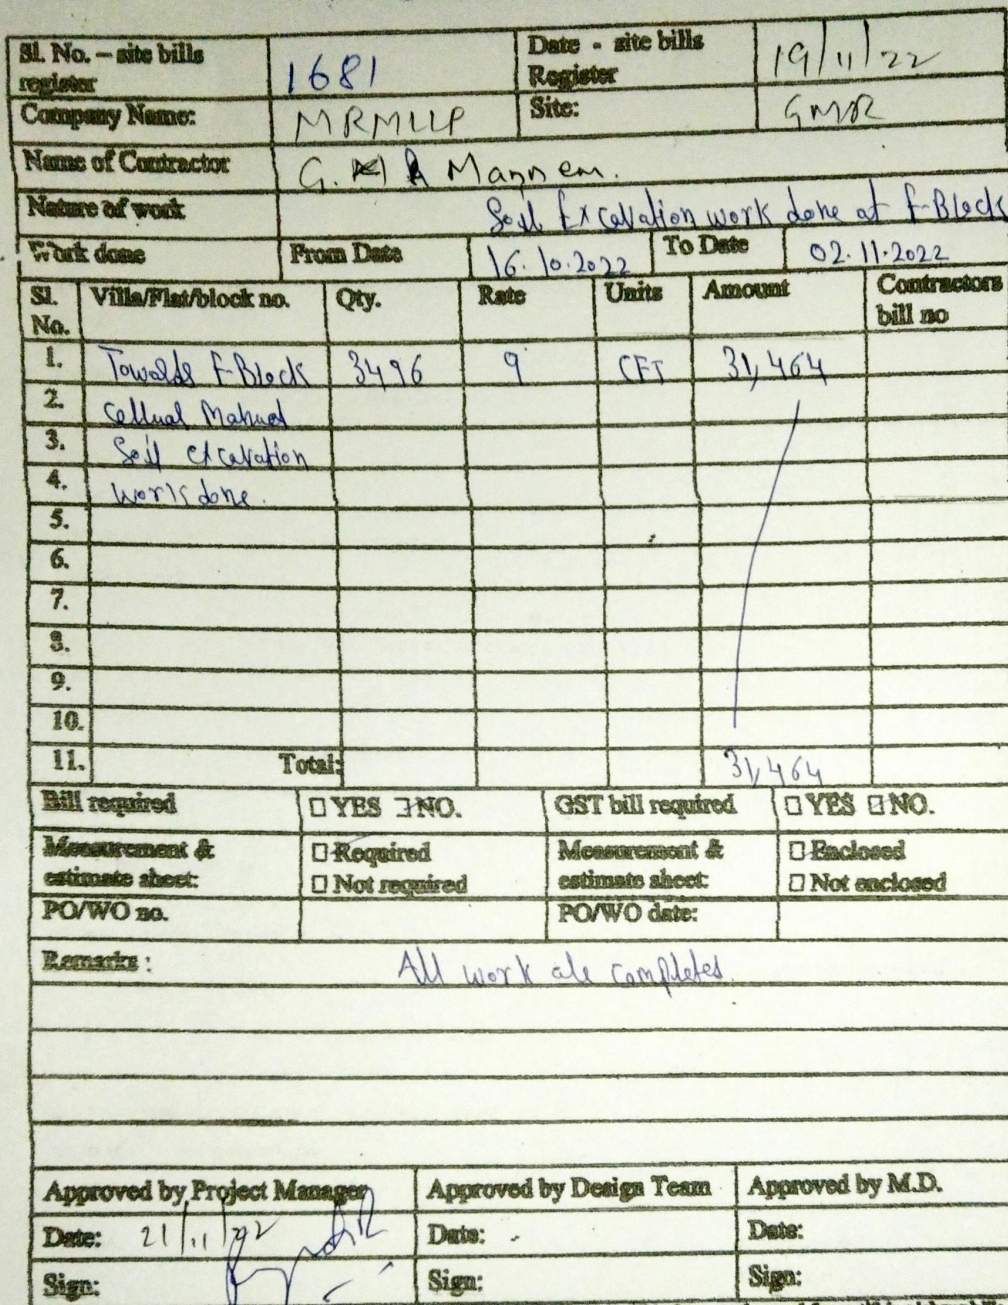 Sl. No. – site bills register 1681 Date - site bills Register 19/11/22
Company Name: MRMLLP Site: GMR
Name of Contractor G. Mannem.
Nature of work Soil Excavation work done at F-Block
Work done From Date 16.10.2022 To Date 02.11.2022
Sl. No. Villa/Flat/block no. Qty. Rate Units Amount Contractors bill no
1. Towards F-Block 3496 9 CFT 31,464
2. Cellual Manual
3. Soil excavation
4. work done.
5.
6.
7.
8.
9.
10.
11. Total: 31,464
Bill required ☐ YES ☐ NO. GST bill required ☐ YES ☐ NO.
Measurement & estimate sheet: ☐ Required ☐ Not required Measurement & estimate sheet: ☐ Enclosed ☐ Not enclosed
PO/WO no. PO/WO date:
Remarks : All work are completed.
Approved by Project Manager Approved by Design Team Approved by M.D.
Date: 21/11/22 Date: Date:
Sign: Sign: Sign: